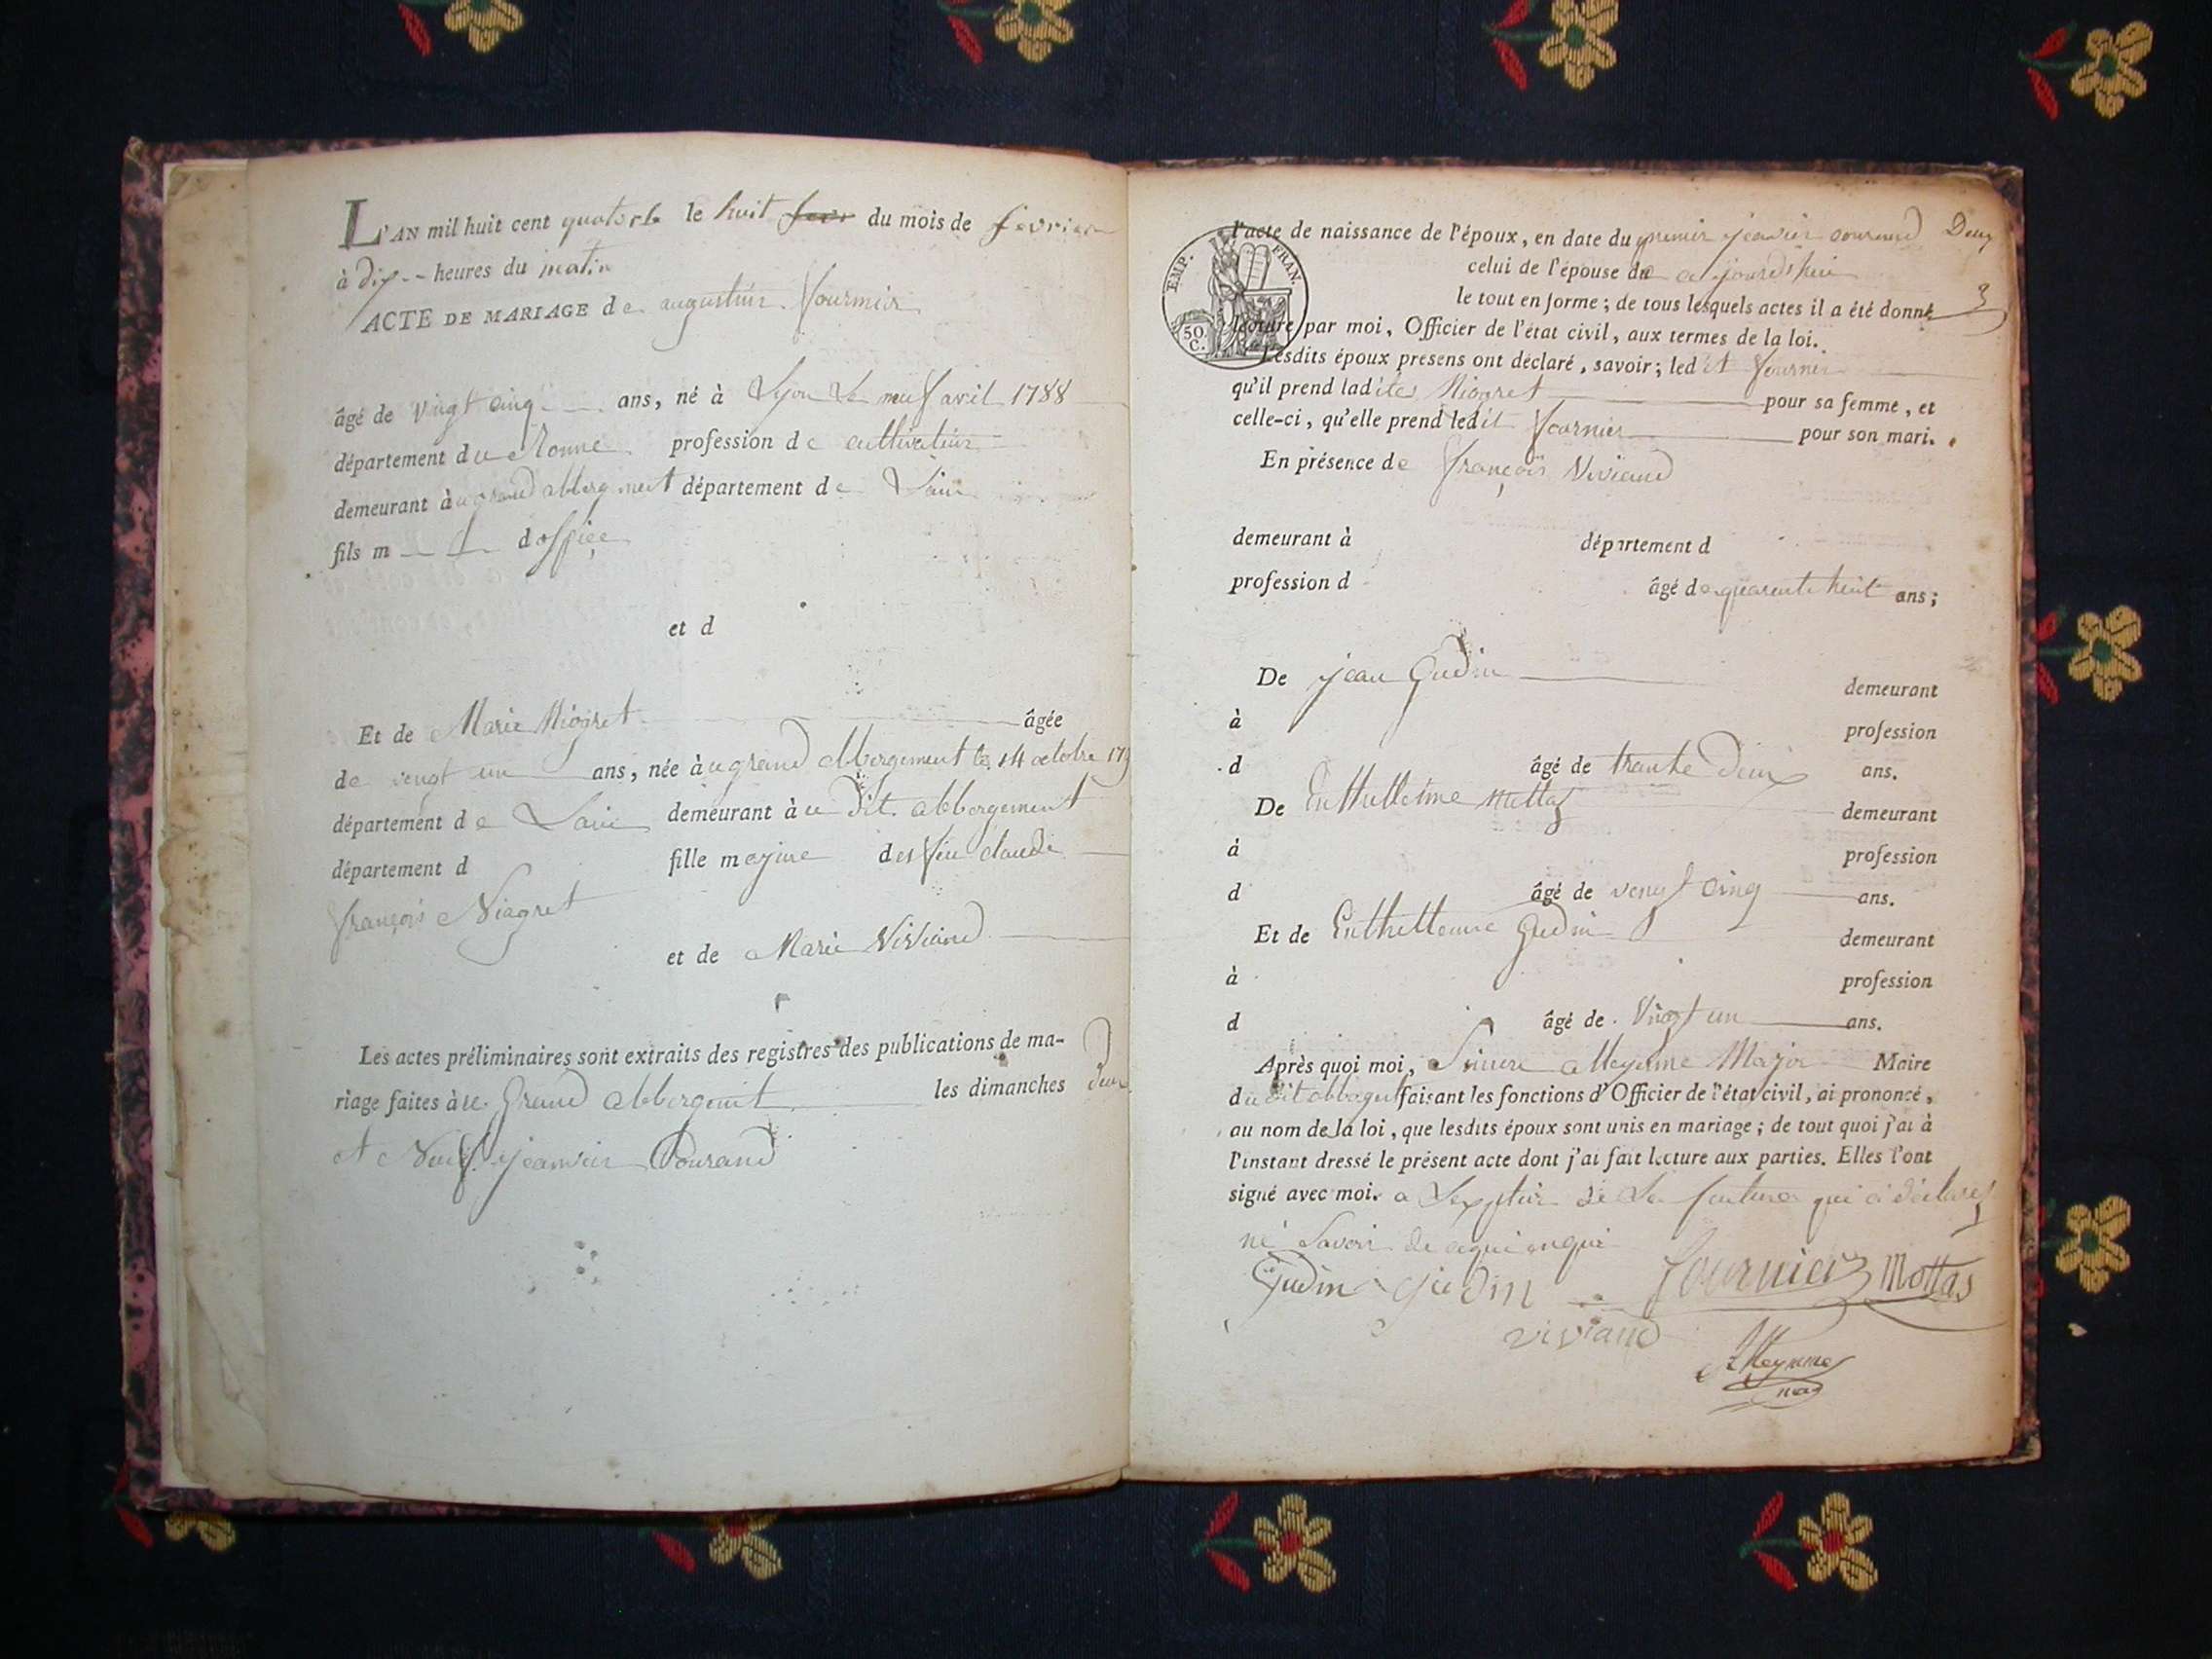 L'AN mil huit cent quatorze le huit du mois de fevrier
à dix heures du matin
ACTE DE MARIAGE de augustin fournier
âgé de vingt cinq ans, né à Lyon Le neuf avril 1788
département du Ronne profession de cultivateur
demeurant au grand abbergement département de Lain
fils m d ospice
et d
Et de Marie Niogret âgée
de vengt un ans, née au grand Abbergement le 14 octobre 179
département de Lain demeurant au dit abbergement
département d fille majure de feu claude
françois Niogret
et de Marie Viviand
Les actes préliminaires sont extraits des registres des publications de ma-
riage faites au Grand abbergement les dimanches deux
et Neuf jeanvier Courand
l'acte de naissance de l'époux, en date du premir jeanvier courand Deux
celui de l'épouse du ajourd'hui
le tout en forme ; de tous lesquels actes il a été donné 3
lecture par moi, Officier de l'état civil, aux termes de la loi.
EMP. FRAN.
50 C.
Lesdits époux présens ont déclaré, savoir ; ledit fournier
qu'il prend ladite Niogret pour sa femme, et
celle-ci, qu'elle prend ledit fournier pour son mari.
En présence de françois Viviand
demeurant à département d
profession d âgé de quarente huit ans ;
De jean Gudin demeurant
à profession
d âgé de trante deux ans.
De Enthellme Mottas demeurant
à profession
d âgé de vengt cinq ans.
Et de Enthelleme Gudin demeurant
à profession
d âgé de vingt un ans.
Après quoi moi, alleyeme Major Maire
du dit faisant les fonctions d'Officier de l'état civil, ai prononcé,
au nom de la loi, que lesdits époux sont unis en mariage ; de tout quoi j'ai à
l'instant dressé le présent acte dont j'ai fait lecture aux parties. Elles l'ont
signé avec moi. a de La futures qui a déclaré
né Savoir de
Gudin gudin fournier Mottas
viviand